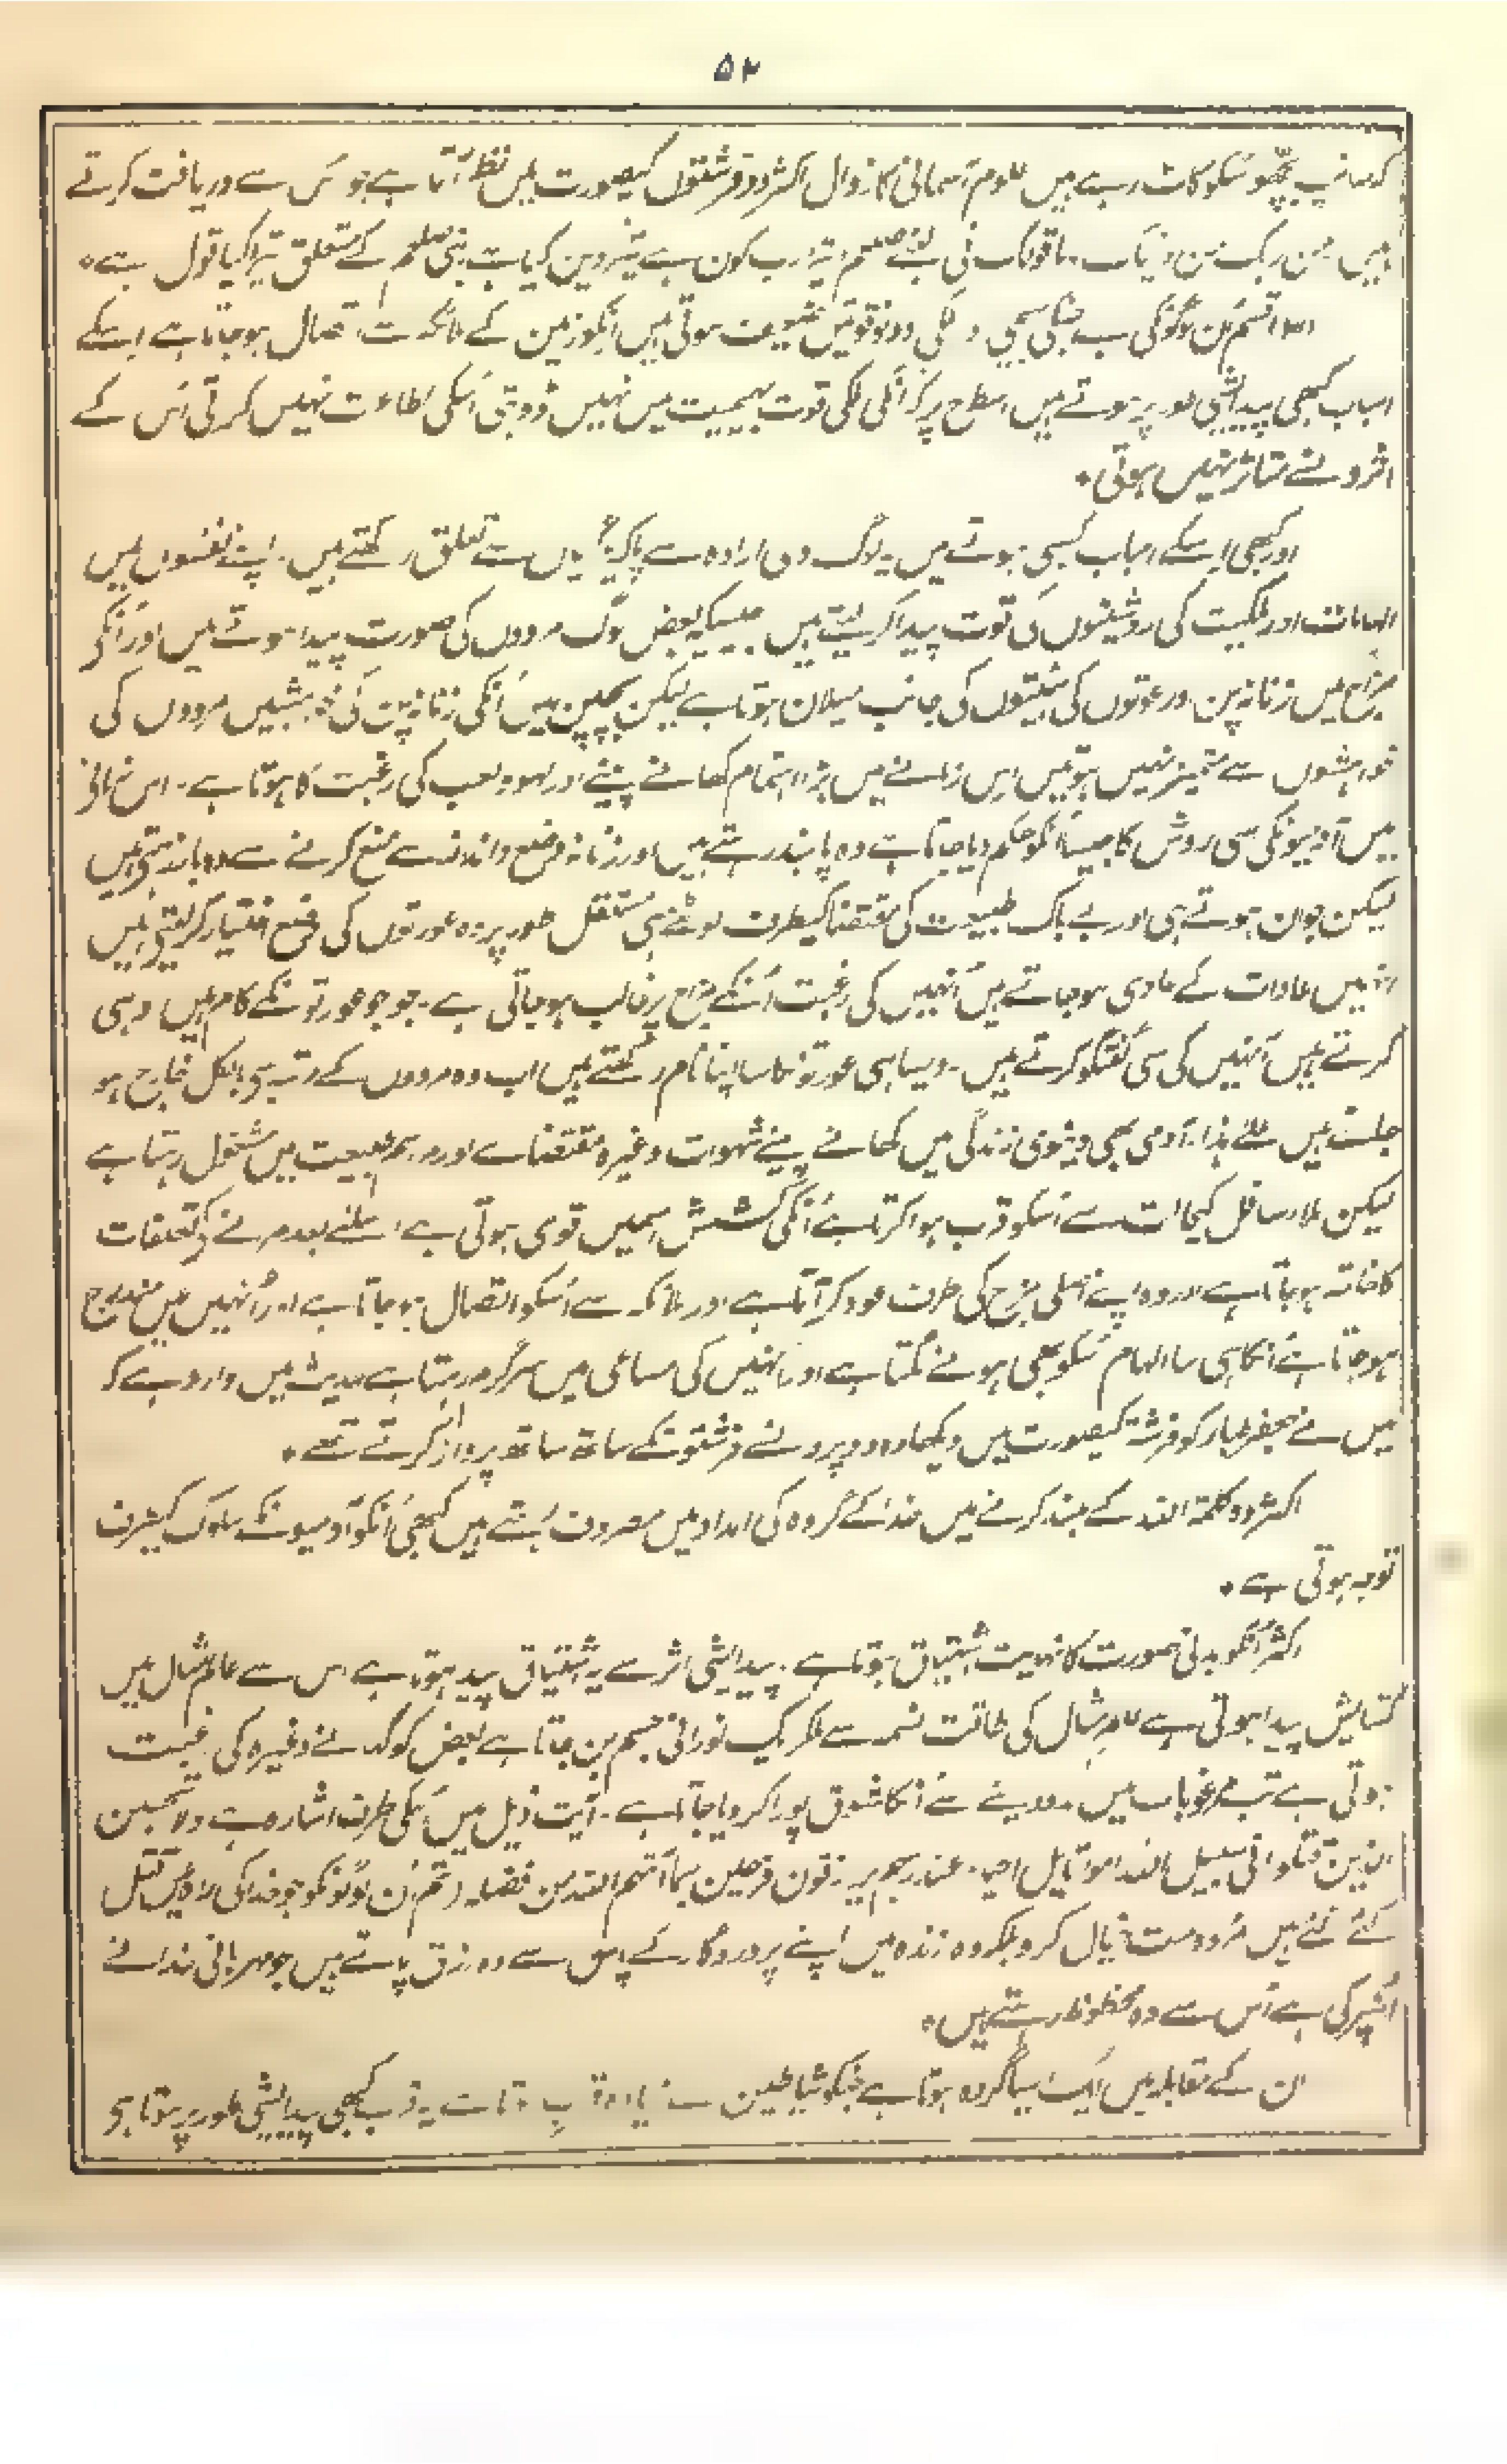 ۵۲
کہ سانپ بچھو اسکو کاٹ رہے ہیں علوم آسمانی کا زوال اکثر دو فرشتوں کیصورت میں نظر آتا ہے جو اس سے دریافت کرتے
ہیں من ربک من دینک ما قولک فی النبی صلعم تیرا رب کون ہے تیرا دین کیا ہے نبی صلعم کے متعلق تیرا کیا قول ہے۔
ملکی دونو قوتیں ضعیف ہوتی ہیں انکو زمین کے ملائکہ سے اتصال ہو جاتا ہے اسکے
اسباب کبھی پیدایشی طور پر ہوتے ہیں اسطرح پر کہ انکی ملکی قوت بہیمیت میں نہیں ڈوبتی اسکی اطاعت نہیں کرتی اس کے
اثروں سے متاثر نہیں ہوتی۔
اور کبھی اسکے اسباب کسبی ہوتے ہیں یہ لوگ دلی ارادہ سے پاکیزگیوں سے تعلق رکھتے ہیں۔ اپنے نفسوں میں
الہامات اور ملکیت کی روشنیوں کی قوت پیدا کر لیتے ہیں جیسیکہ بعض لوگ مردوں کی صورت پیدا ہوتے ہیں اور انکی
مزاج میں زنانہ پن اور عورتوں کی ہیئتوں کی جانب میلان ہوتا ہے لیکن بچپن میں انکی زنانہ پن کی خواہشیں مردوں کی
خواہشوں سے متمیز نہیں ہوتیں اس زمانے میں بڑا اہتمام کھانے پینے اور لہو و لعب کی رغبت کا ہوتا ہے۔ اس زمانہ
میں آدمیونکی سی روش کا جیسا انکو حکم دیا جاتا ہے وہ پابند رہتے ہیں اور زنانہ وضع و انداز سے منع کرنے سے وہ باز رہتے ہیں
لیکن جوان ہوتے ہی اور بے باک طبیعت کی مقتضا کیطرف لوٹتے ہی مستقل طور پر وہ عورتوں کی وضع اختیار کر لیتے ہیں
انہیں عادات کے عادی ہو جاتے ہیں انہیں کی رغبت انکے مزاج پر غالب ہو جاتی ہے۔ جو جو عورتونکے کام ہیں وہی
کرتے ہیں انہیں کی سی گفتگو کرتے ہیں۔ ویسا ہی عورتونکا سا اپنا نام رکھتے ہیں اب وہ مردوں کے رتبہ سے بالکل خارج ہو
جاتے ہیں علی ہذا۔ آدمی بھی دنیوی زندگی میں کھانے پینے شہوت وغیرہ مقتضائے اور مراسم طبیعت میں مشغول رہتا ہے
لیکن ملاء سافل کیجماعت سے اسکو قرب ہوا کرتا ہے انکی کشش اسمیں قوی ہوتی ہے اسلئے بعد مرنے کے تعلقات
کا خاتمہ ہو جاتا ہے اور وہ اپنے اصلی مزاج کی طرف عود کر آتا ہے اور ملائکہ سے اسکو اتصال ہو جاتا ہے اور انہیں میں مندرج
ہو جاتا ہے انکا ہی سا الہام اسکو بھی ہونے لگتا ہے اور انہیں کی مساعی میں سرگرم رہتا ہے حدیث میں وارد ہے کہ
میں نے جعفر طیار کو فرشتہ کیصورت میں دیکھا وہ دو پروں سے فرشتونکے ساتھ ساتھ پرواز کرتے تھے۔
اکثر وہ کلمۃ اللہ کے بلند کرنے میں خدا کے گروہ کی امداد میں مصروف رہتے ہیں کبھی انکو آدمیونکے سلوک کیطرف
توجہ ہوتی ہے۔
اکثر انکو بدنی صورت کا نہایت اشتیاق ہوتا ہے۔ پیدایشی اثر سے یہ اشتیاق پیدا ہوتا ہے اس سے عالم مثال میں
کشایش پیدا ہوتی ہے عالم مثال کی طاقت نسمہ سے ملکر ایک نورانی جسم بن جاتا ہے بعض کو کھانے وغیرہ کی رغبت
ہوتی ہے تب مرغوبات میں مدد دینے سے انکا شوق پورا کر دیا جاتا ہے۔ آیت ذیل میں اسکی طرف اشارہ ہے ولا تحسبن
الذین قتلوا فی سبیل اللہ امواتا بل احیاء عند ربہم یرزقون فرحین بما آتہم اللہ من فضلہ (تم ان لوگونکو جو خدا کی راہ میں قتل
کئے گئے ہیں مردہ مت خیال کرو بلکہ وہ زندہ ہیں اپنے پروردگار کے پاس سے وہ رزق پاتے ہیں جو مہربانی خدا نے
انپر کی ہے اس سے وہ محظوظ رہتے ہیں۔
ان کے مقابلہ میں ایک ایسا گروہ ہوتا ہے جنکو شیاطین سے زیادہ قرب ہوتا ہے یہ قرب کبھی پیدایشی طور پر ہوتا ہے